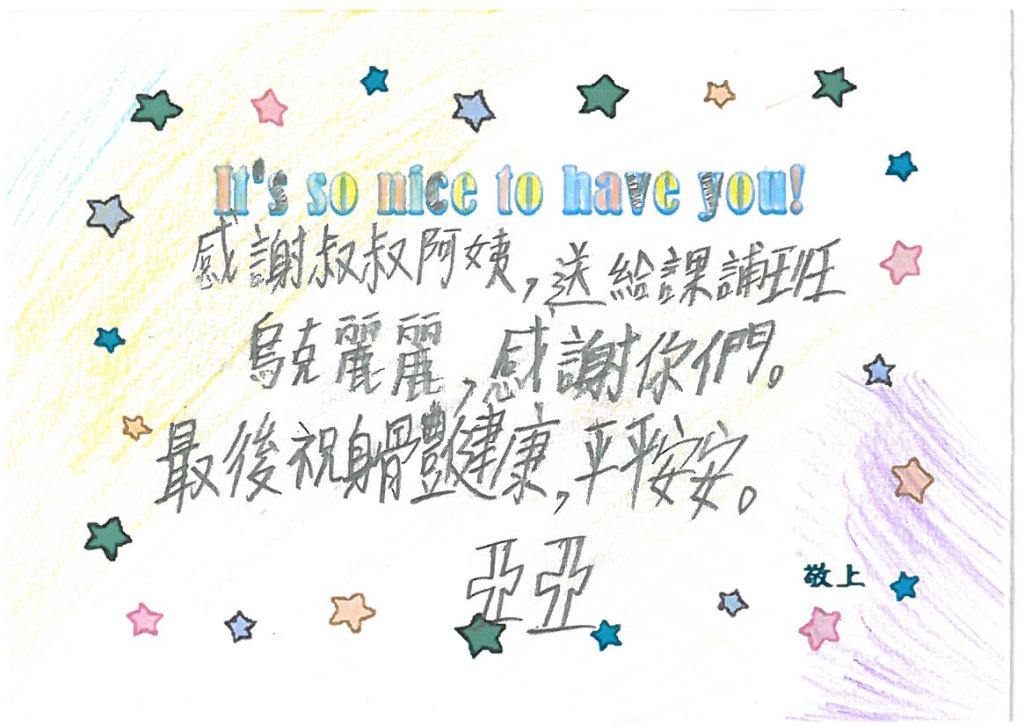 It's so nice to have you!
感謝叔叔阿姨,送給課誧班
烏克麗麗,感謝你們。
最後祝身體健康,平平安安。
亞亞
敬上